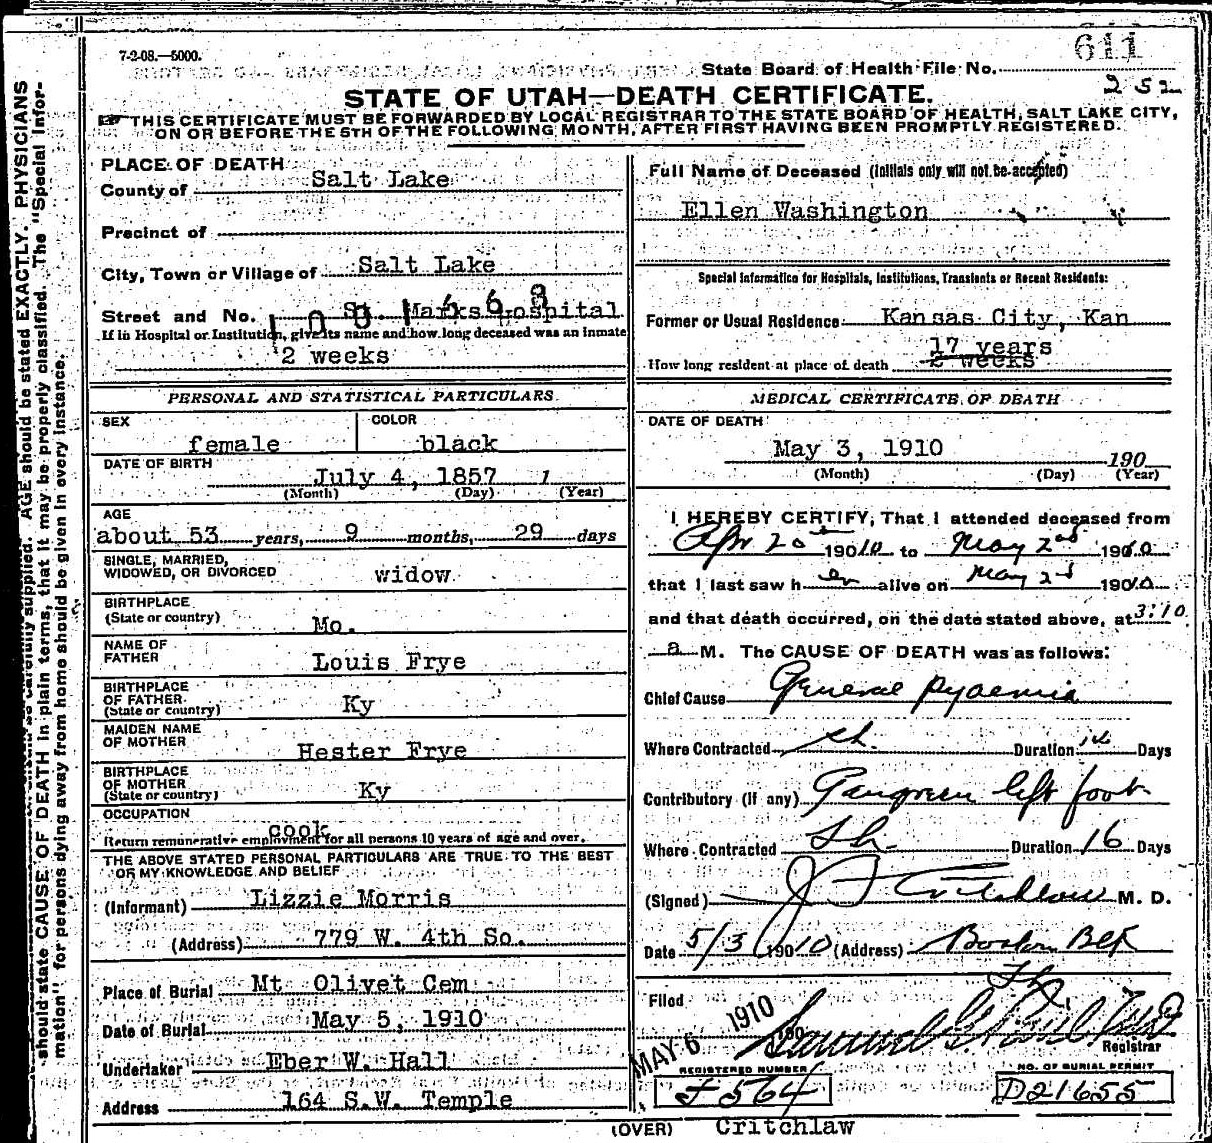 7-2-08.—5000.
611
State Board of Health File No.
252
STATE OF UTAH—DEATH CERTIFICATE.
THIS CERTIFICATE MUST BE FORWARDED BY LOCAL REGISTRAR TO THE STATE BOARD OF HEALTH, SALT LAKE CITY,
ON OR BEFORE THE 5TH OF THE FOLLOWING MONTH, AFTER FIRST HAVING BEEN PROMPTLY REGISTERED.
PLACE OF DEATH
County of Salt Lake
Precinct of
City, Town or Village of Salt Lake
Street and No. St. Marks Hospital
If in Hospital or Institution, give its name and how long deceased was an inmate
2 weeks
PERSONAL AND STATISTICAL PARTICULARS
SEX female COLOR black
DATE OF BIRTH
July 4, 1857 1
(Month) (Day) (Year)
AGE
about 53 years, 9 months, 29 days
SINGLE, MARRIED,
WIDOWED, OR DIVORCED widow
BIRTHPLACE
(State or country) Mo.
NAME OF
FATHER Louis Frye
BIRTHPLACE
OF FATHER
(State or country) Ky
MAIDEN NAME
OF MOTHER Hester Frye
BIRTHPLACE
OF MOTHER
(State or country) Ky
OCCUPATION
cook
Return remunerative employment for all persons 10 years of age and over.
THE ABOVE STATED PERSONAL PARTICULARS ARE TRUE TO THE BEST
OF MY KNOWLEDGE AND BELIEF
(Informant) Lizzie Morris
(Address) 779 W. 4th So.
Place of Burial Mt Olivet Cem
Date of Burial May 5, 1910
Undertaker Eber W. Hall
Address 164 S.W. Temple
Full Name of Deceased (Initials only will not be accepted)
Ellen Washington
Special Information for Hospitals, Institutions, Transients or Recent Residents:
Former or Usual Residence Kansas City, Kan
17 years
How long resident at place of death 2 weeks
MEDICAL CERTIFICATE OF DEATH
DATE OF DEATH
May 3, 1910 190
(Month) (Day) (Year)
I HEREBY CERTIFY, That I attended deceased from
Apr 20th 1910 to May 2nd 1910
that I last saw her alive on May 2d 1910
and that death occurred, on the date stated above, at 3:10
a M. The CAUSE OF DEATH was as follows:
Chief Cause General pyaemia
Where Contracted Duration 14 Days
Contributory (if any) Gangreen left foot
Where Contracted Duration 16 Days
(Signed) J F Critchlow M. D.
Date 5/3 1910 (Address) Boston Blk
Filed MAY 6 1910 190
Registrar
REGISTERED NUMBER
564
NO. OF BURIAL PERMIT
D21655
(OVER) Critchlaw
AGE should be stated EXACTLY. PHYSICIANS
should state CAUSE OF DEATH in plain terms, that it may be properly classified. The "Special Infor-
mation" for persons dying away from home should be given in every instance.